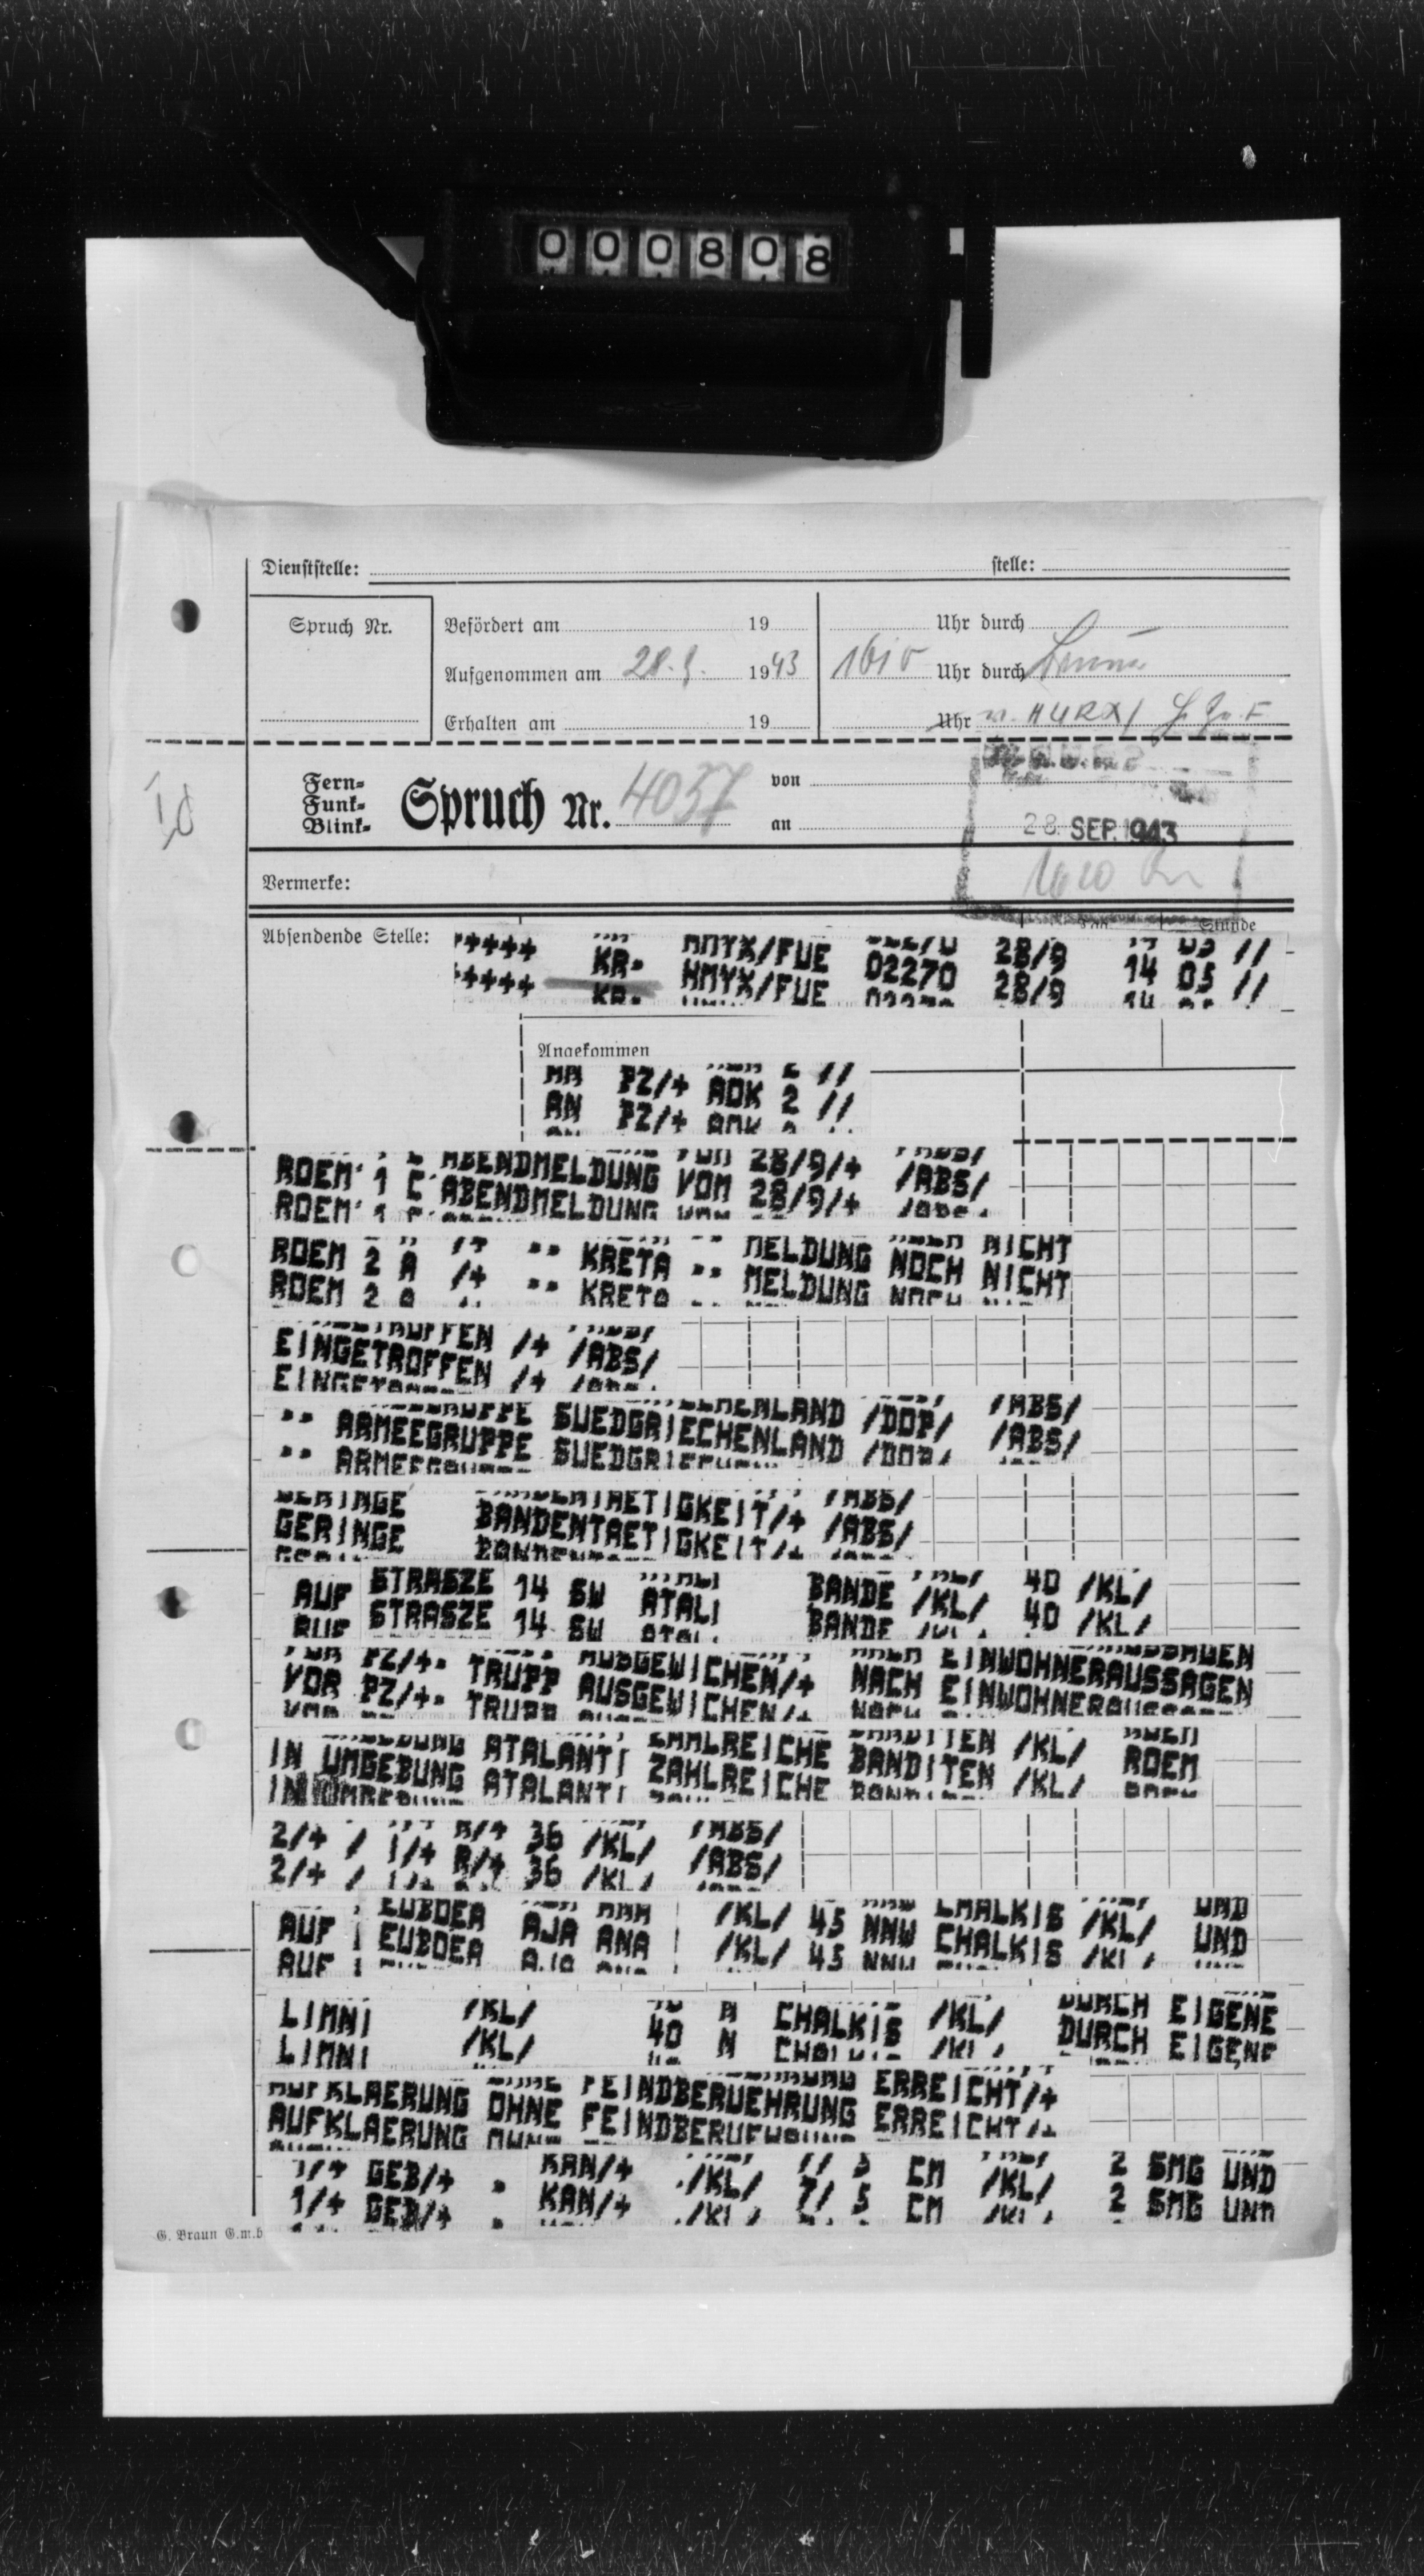 000808
Dienststelle: stelle:
Spruch Nr. Befördert am 19 Uhr durch
Aufgenommen am 28.9. 1943 1610 Uhr durch
Erhalten am 19 Uhr
Fern-
Funk-
Blink-
Spruch Nr. 4037 von
an
28. SEP. 1943
Vermerke: 1620
Absendende Stelle: Stunde
+++++ KR- HMYX/FUE 02270 28/9 14 05 //
Angekommen
AN PZ/+ AOK 2 //
ROEM 1 C ABENDMELDUNG VOM 28/9/+ /ABS/
ROEM 2 A /+ -- KRETA -- MELDUNG NOCH NICHT
EINGETROFFEN /+ /ABS/
-- ARMEEGRUPPE SUEDGRIECHENLAND /DOP/ /ABS/
GERINGE BANDENTAETIGKEIT/+ /ABS/
AUF STRASZE 14 SW ATALI BANDE /KL/ 40 /KL/
VOR PZ/+- TRUPP AUSGEWICHEN/+ NACH EINWOHNERAUSSAGEN
IN UMGEBUNG ATALANTI ZAHLREICHE BANDITEN /KL/ ROEM
2/+ / 1/+ R/+ 36 /KL/ /ABS/
AUF EUBOEA AJA ANA /KL/ 45 NNW CHALKIS /KL/ UND
LIMNI /KL/ 40 N CHALKIS /KL/ DURCH EIGENE
AUFKLAERUNG OHNE FEINDBERUEHRUNG ERREICHT/+
1/+ GEB/+ - KAN/+ /KL/ 7/ 5 CM /KL/ 2 SMG UND
G. Braun G.m.b